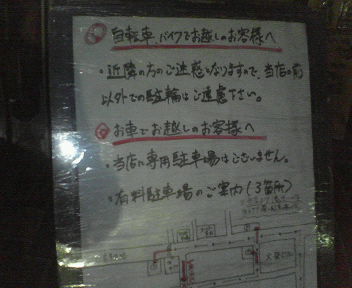 自転車、バイクでお越しのお客様へ
・近隣の方のご迷惑となりますので、当店の前
以外での駐輪はご遠慮下さい。
お車でお越しのお客様へ
・当店に専用駐車場はございません。
・有料駐車場のご案内(3箇所)